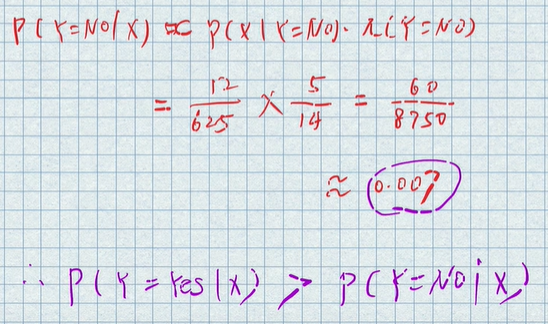 P(Y=No|X) ∝ P(X|Y=No)· π(Y=NO)
= 12/625 × 5/14 = 60/8750
≈ 0.007
∴ P(Y=Yes|X) > P(Y=NO|X)